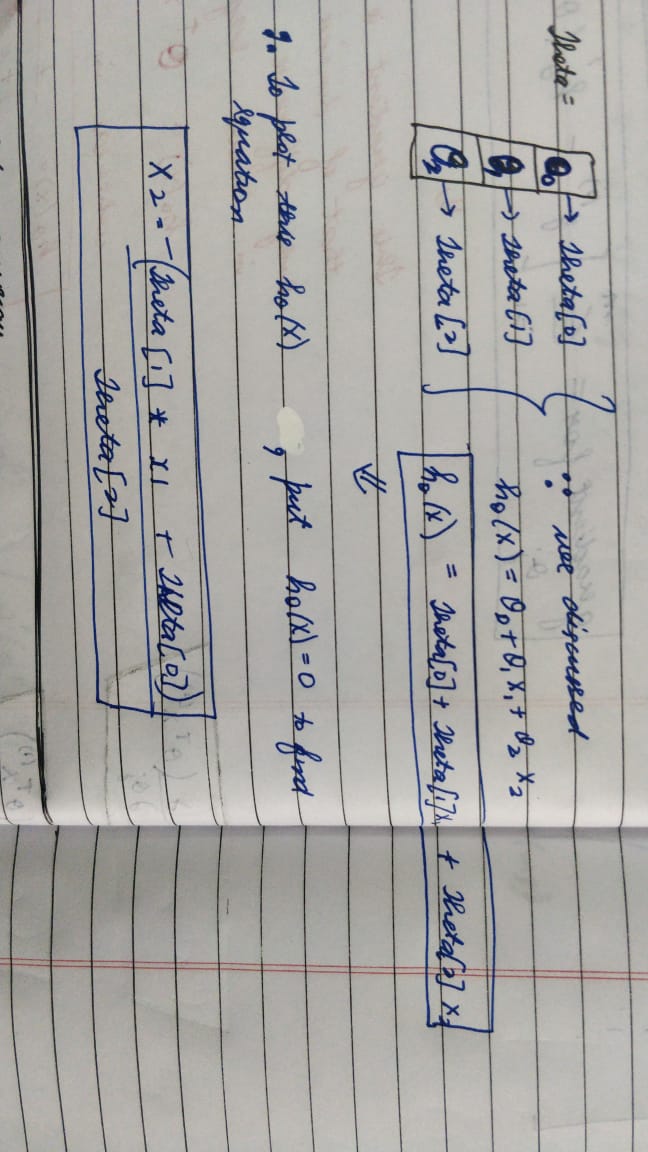 Theta =
θ0 → Theta[0]
θ1 → Theta[1]
θ2 → Theta[2]
∵ we discussed
h0(x) = θ0 + θ1 x1 + θ2 x2
h0(x) = Theta[0] + Theta[1]x1 + Theta[2] x2
⇓
9. To plot these h0(x) , put h0(x) = 0 to find
equation
x2 = -(Theta[1] * x1 + Theta[0])
Theta[2]